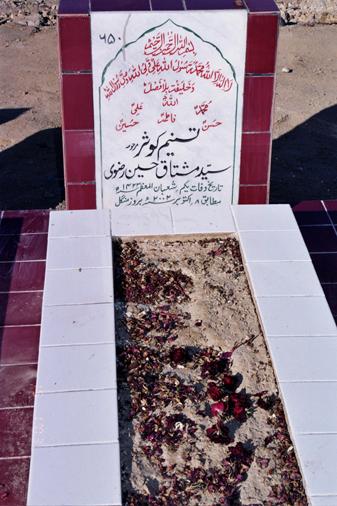 ۶۵۰
بسم اللہ الرحمن الرحیم
لا الہ الا اللہ محمد رسول اللہ علی ولی اللہ وصی رسول اللہ
وخلیفتہ بلا فصل
اللہ
محمد علی
فاطمہ
حسن حسین
تسنیم کوثر زوجہ
سید مشتاق حسین رضوی
تاریخ وفات یکم شعبان المعظم ۱۴۲۳ ھ
مطابق ۸ اکتوبر ۲۰۰۲ء بروز منگل